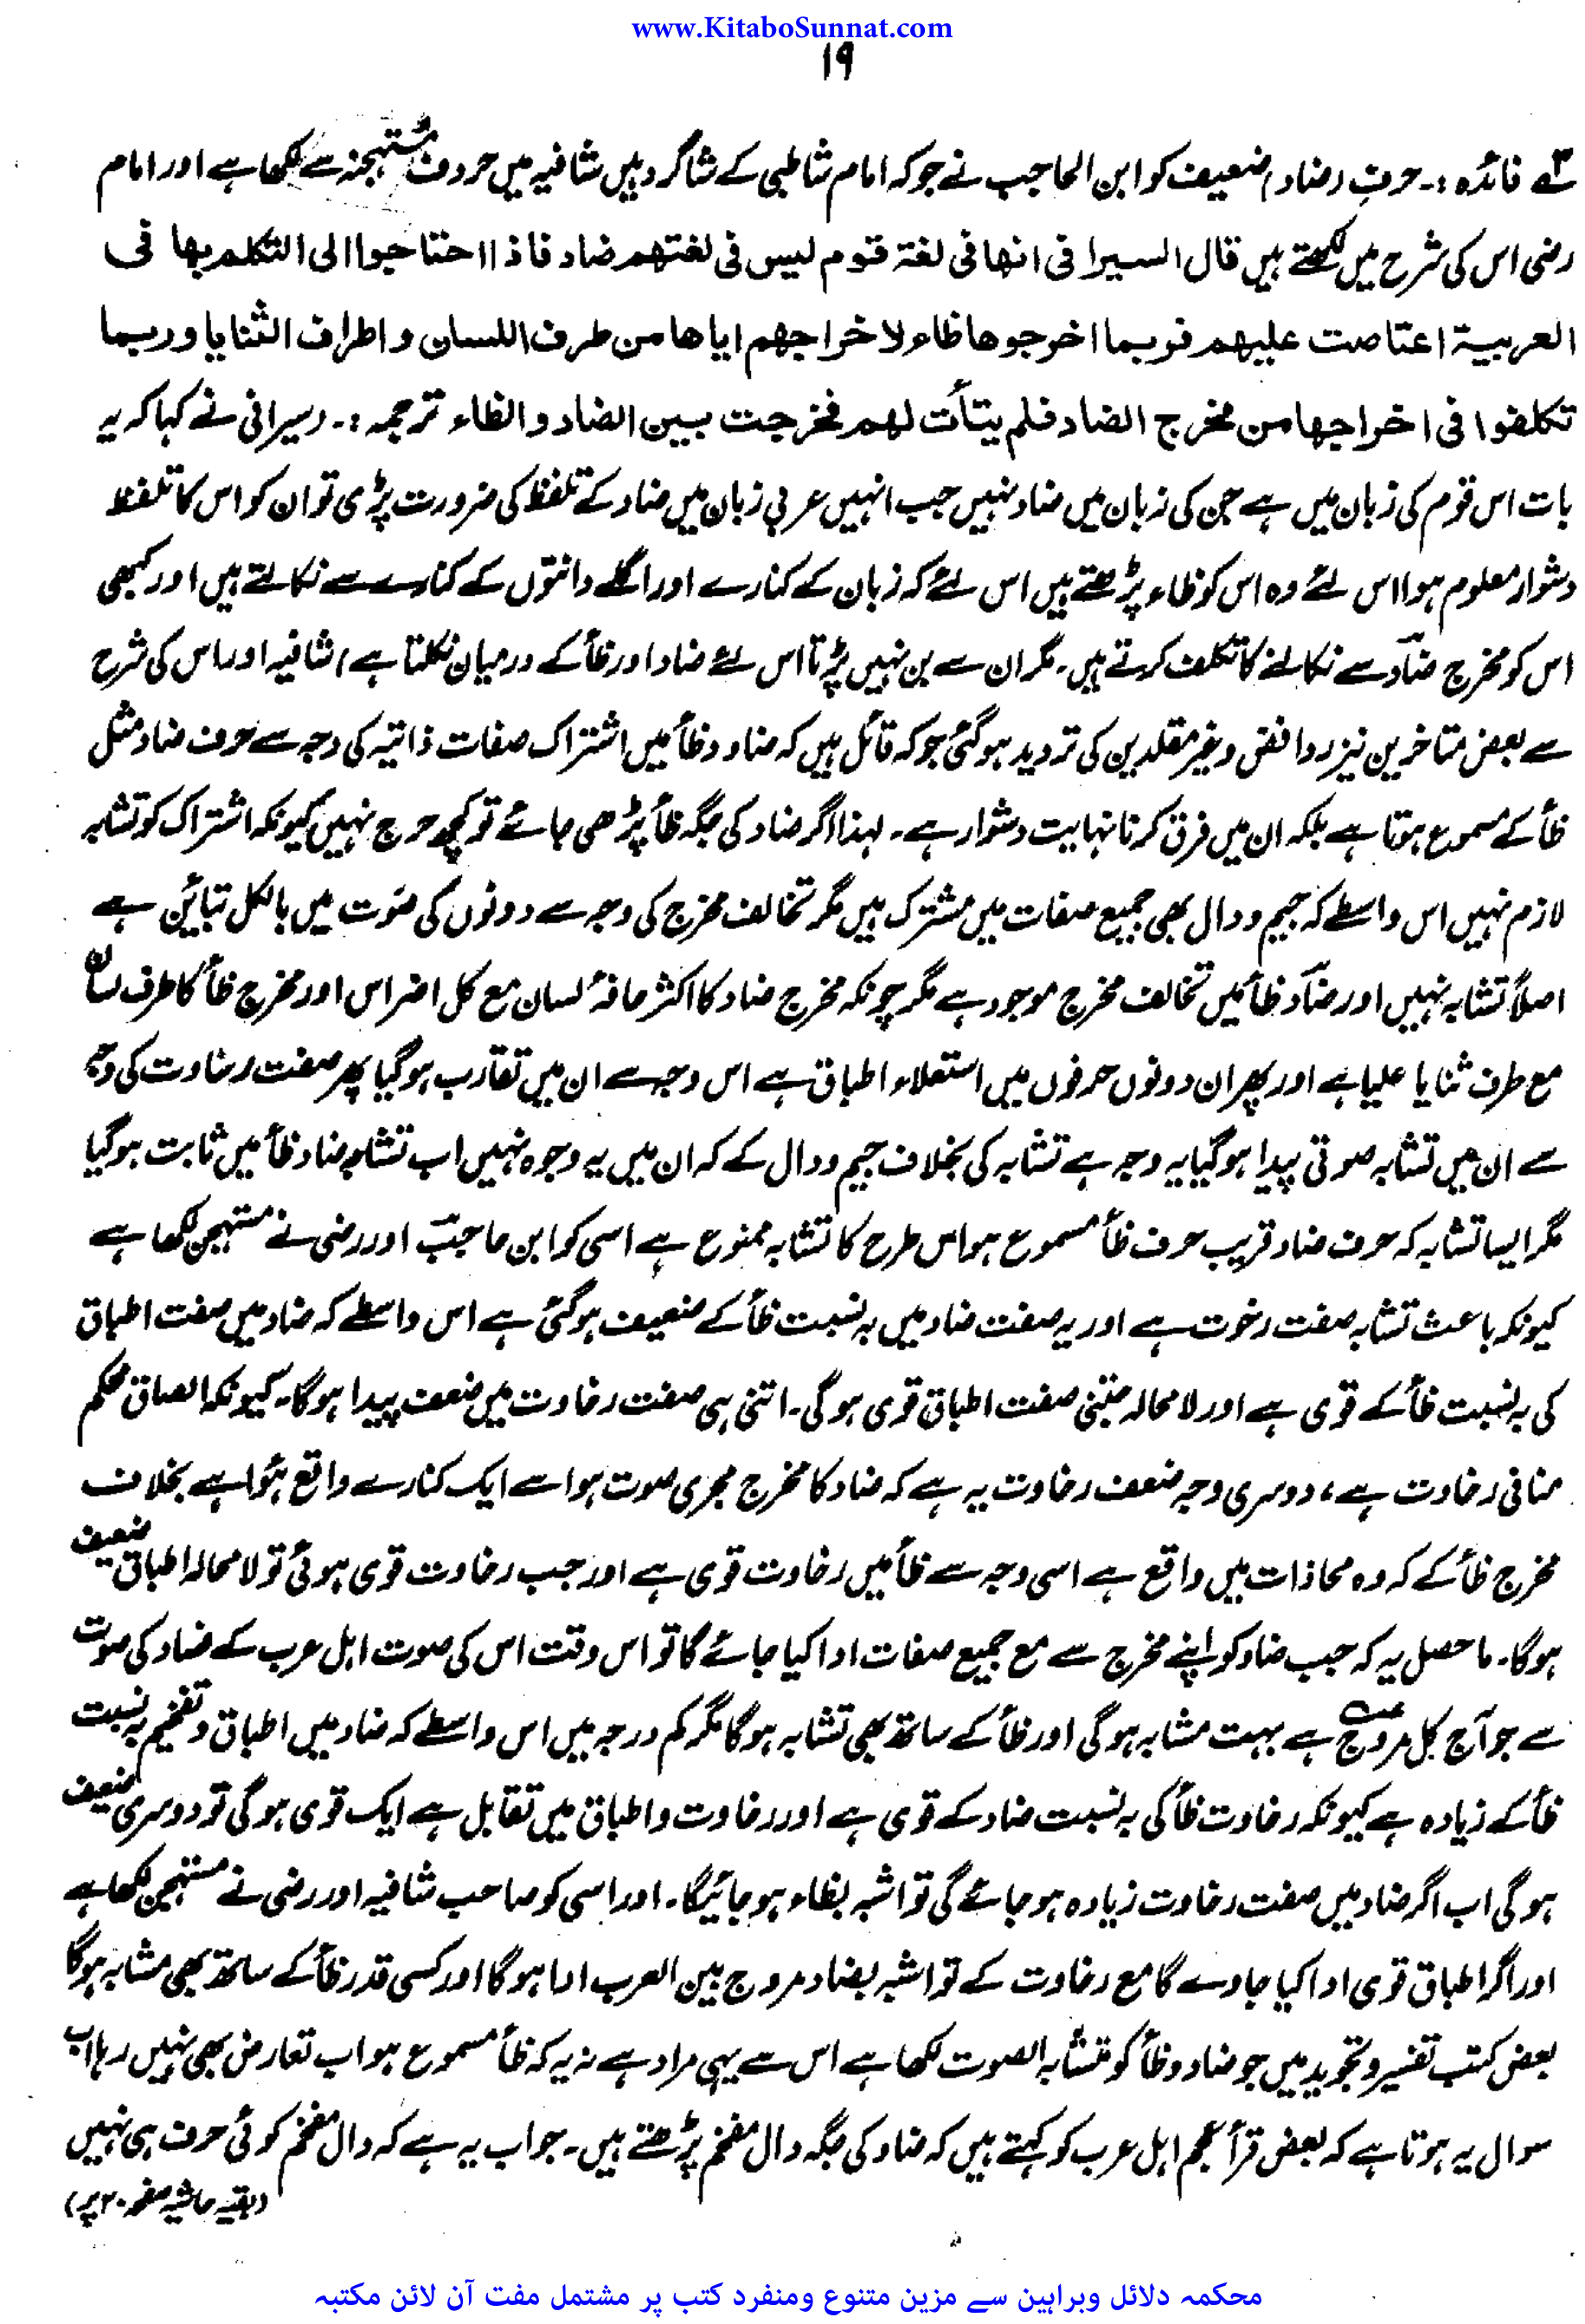 www.KitaboSunnat.com
۱۹
۳ے فائدہ :۔ حرفِ (ضاد) ضعیف کو ابن الحاجب نے جو کہ امام شاطبی کے شاگرد ہیں شافیہ میں حروف مُستہجنہ سے لکھا ہے اور امام
رضی اس کی شرح میں لکھتے ہیں قال السیرافی انھا فی لغۃ قوم لیس فی لغتھم ضاد فاذا احتاجوا الی التکلم بھا فی
العربیۃ اعتاصت علیھم فربما اخرجوھا ظاء لاخراجھم ایاھا من طرف اللسان و اطراف الثنایا وربما
تکلفوا فی اخراجھا من مخرج الضاد فلم یتأت لھم فخرجت بین الضاد والظاء ترجمہ :۔ (سیرافی نے کہا کہ یہ
بات اس قوم کی زبان میں ہے جن کی زبان میں ضاد نہیں جب انہیں عربی زبان میں ضاد کے تلفظ کی ضرورت پڑی تو ان کو اس کا تلفظ
دشوار معلوم ہوا اس لئے وہ اس کو ظاء پڑھتے ہیں اس لئے کہ زبان کے کنارے اور اگلے دانتوں کے کنارے سے نکالتے ہیں اور کبھی
اس کو مخرج ضاد سے نکالنے کا تکلف کرتے ہیں۔ مگر ان سے بن نہیں پڑتا اس لئے ضاد اور ظاٗ کے درمیان نکلتا ہے) شافیہ اور اس کی شرح
سے بعض متاخرین نیز روافض و غیر مقلدین کی تردید ہوگئی جو کہ قائل ہیں کہ ضاد و ظاٗ میں اشتراک صفات ذاتیہ کی وجہ سے حرف ضاد مثل
ظاٗ کے مسموع ہوتا ہے بلکہ ان میں فرق کرنا نہایت دشوار ہے۔ لہذا اگر ضاد کی جگہ ظاٗ پڑھی جائے تو کچھ حرج نہیں کیونکہ اشتراک کو تشابہ
لازم نہیں اس واسطے کہ جیم و دال بھی جمیع صفات میں مشترک ہیں مگر تخالف مخرج کی وجہ سے دونوں کی صوت میں بالکل تبائین ہے
اصلاً تشابہ نہیں اور ضاد ظاٗ میں تخالف مخرج موجود ہے مگر چونکہ مخرج ضاد کا اکثر حافۂ لسان مع کل اضراس اور مخرج ظاٗ کا طرف لسان
مع طرف ثنایا علیا ہے اور پھر ان دونوں حرفوں میں استعلاء اطباق ہے اس وجہ سے ان میں تقارب ہوگیا پھر صفت رخاوت کی وجہ
سے ان میں تشابہ صوتی پیدا ہوگیا یہ وجہ ہے تشابہ کی بخلاف جیم و دال کے کہ ان میں یہ وجوہ نہیں اب تشابہ ضاد ظاٗ میں ثابت ہوگیا
مگر ایسا تشابہ کہ حرف ضاد قریب حرف ظاٗ مسموع ہو اس طرح کا تشابہ ممنوع ہے اسی کو ابن حاجب اور رضی نے مستہجن لکھا ہے
کیونکہ باعث تشابہ صفت رخوت ہے اور یہ صفت ضاد میں بہ نسبت ظاٗ کے ضعیف ہوگئی ہے اس واسطے کہ ضاد میں صفت اطباق
کی بہ نسبت ظاٗ کے قوی ہے اور لا محالہ جتنی صفت اطباق قوی ہوگی۔ اتنی ہی صفت رخاوت میں ضعف پیدا ہوگا۔ کیونکہ الصاق محکم
منافی رخاوت ہے، دوسری وجہ ضعف رخاوت یہ ہے کہ ضاد کا مخرج مجریٰ صوت ہوا سے ایک کنارے واقع ہُوا ہے بخلاف
مخرج ظاٗ کے کہ وہ محاذات میں واقع ہے اسی وجہ سے ظاٗ میں رخاوت قوی ہے اور جب رخاوت قوی ہوئی تو لا محالہ اطباق ضعیف
ہوگا۔ ماحصل یہ کہ جب ضاد کو اپنے مخرج سے مع جمیع صفات ادا کیا جائے گا تو اس وقت اس کی صوت اہل عرب کے ضاد کی صوت
سے جو آج کل مروّج ہے بہت مشابہ ہوگی اور ظاٗ کے ساتھ بھی تشابہ ہوگا مگر کم درجہ میں اس واسطے کہ ضاد میں اطباق و تفخیم بہ نسبت
ظاٗ کے زیادہ ہے کیونکہ رخاوت ظاٗ کی بہ نسبت ضاد کے قوی ہے اور رخاوت و اطباق میں تقابل ہے ایک قوی ہوگی تو دوسری ضعیف
ہوگی اب اگر ضاد میں صفت رخاوت زیادہ ہو جائے گی تو اشبہ بظاء ہو جائیگا۔ اور اسی کو صاحب شافیہ اور رضی نے مستہجن لکھا ہے
اور اگر اطباق قوی ادا کیا جاوے گا مع رخاوت کے تو اشبہ بضاد مروج بین العرب ادا ہوگا اور کسی قدر ظاٗ کے ساتھ بھی مشابہ ہوگا
بعض کتب تفسیر و تجوید میں جو ضاد و ظاٗ کو متشابہ الصوت لکھا ہے اس سے یہی مراد ہے نہ یہ کہ ظاٗ مسموع ہو اب تعارض بھی نہیں رہا اب
سوال یہ ہوتا ہے کہ بعض قرأ عجم اہل عرب کو کہتے ہیں کہ ضاد کی جگہ دال مفخم پڑھتے ہیں۔ جواب یہ ہے کہ دال مفخم کوئی حرف ہی نہیں
(بقیہ حاشیہ صفحہ ۲۰ پر)
محکمہ دلائل وبراہین سے مزین متنوع ومنفرد کتب پر مشتمل مفت آن لائن مکتبہ